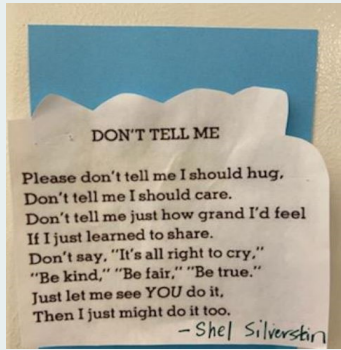 DON'T TELL ME
Please don't tell me I should hug,
Don't tell me I should care.
Don't tell me just how grand I'd feel
If I just learned to share.
Don't say, "It's all right to cry,"
"Be kind," "Be fair," "Be true."
Just let me see YOU do it,
Then I just might do it too.
-Shel Silverstin